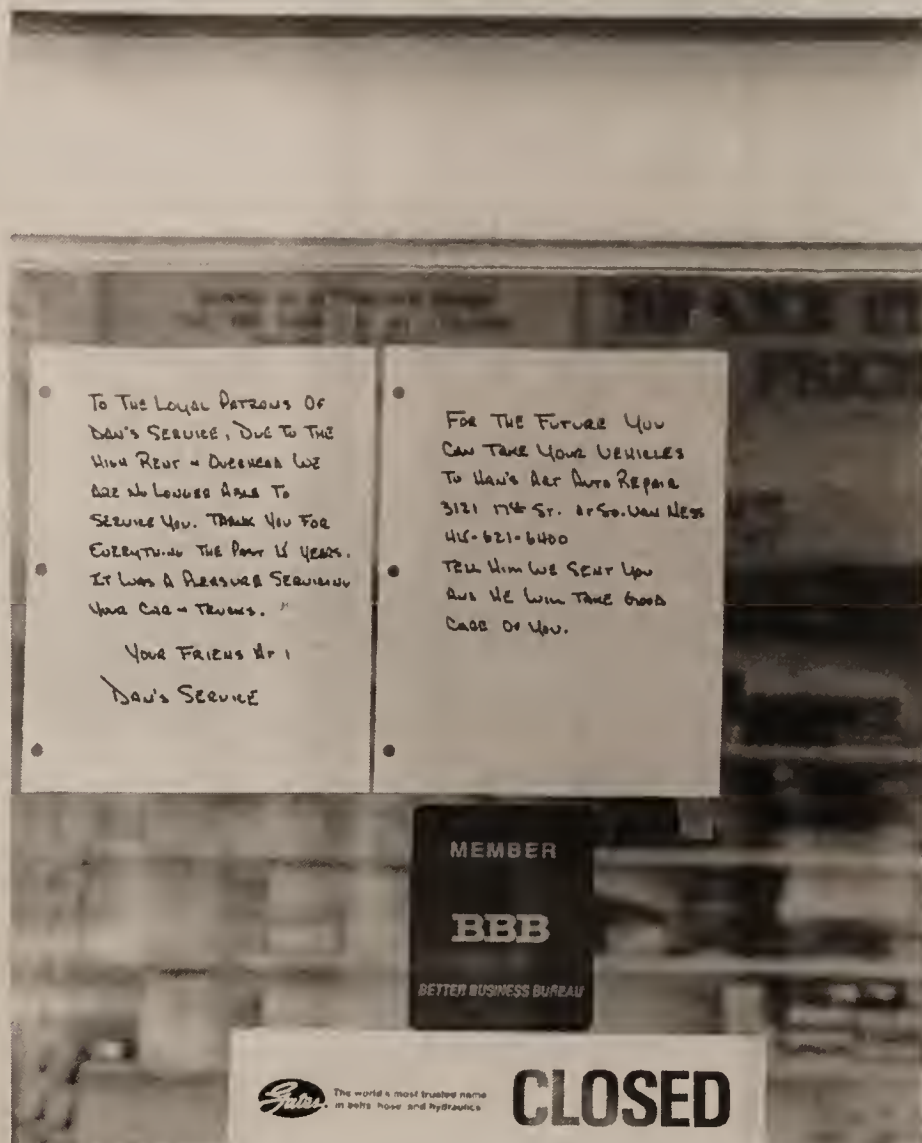 To The Loyal Patrons Of
Dan's Service, Due To The
High Rent + Overhead We
Are No Longer Able To
Service You. Thank You For
Everything The Past 15 Years.
It Was A Pleasure Servicing
Your Car + Trucks.
Your Friens At
Dan's Service
For The Future You
Can Take Your Vehicles
To Han's Art Auto Repair
3121 17th St. at So. Van Ness
415-621-6400
Tell Him We Sent You
And He Will Take Good
Care Of You.
MEMBER
BBB
BETTER BUSINESS BUREAU
Gates
The world's most trusted name
in belts, hose, and hydraulics
CLOSED